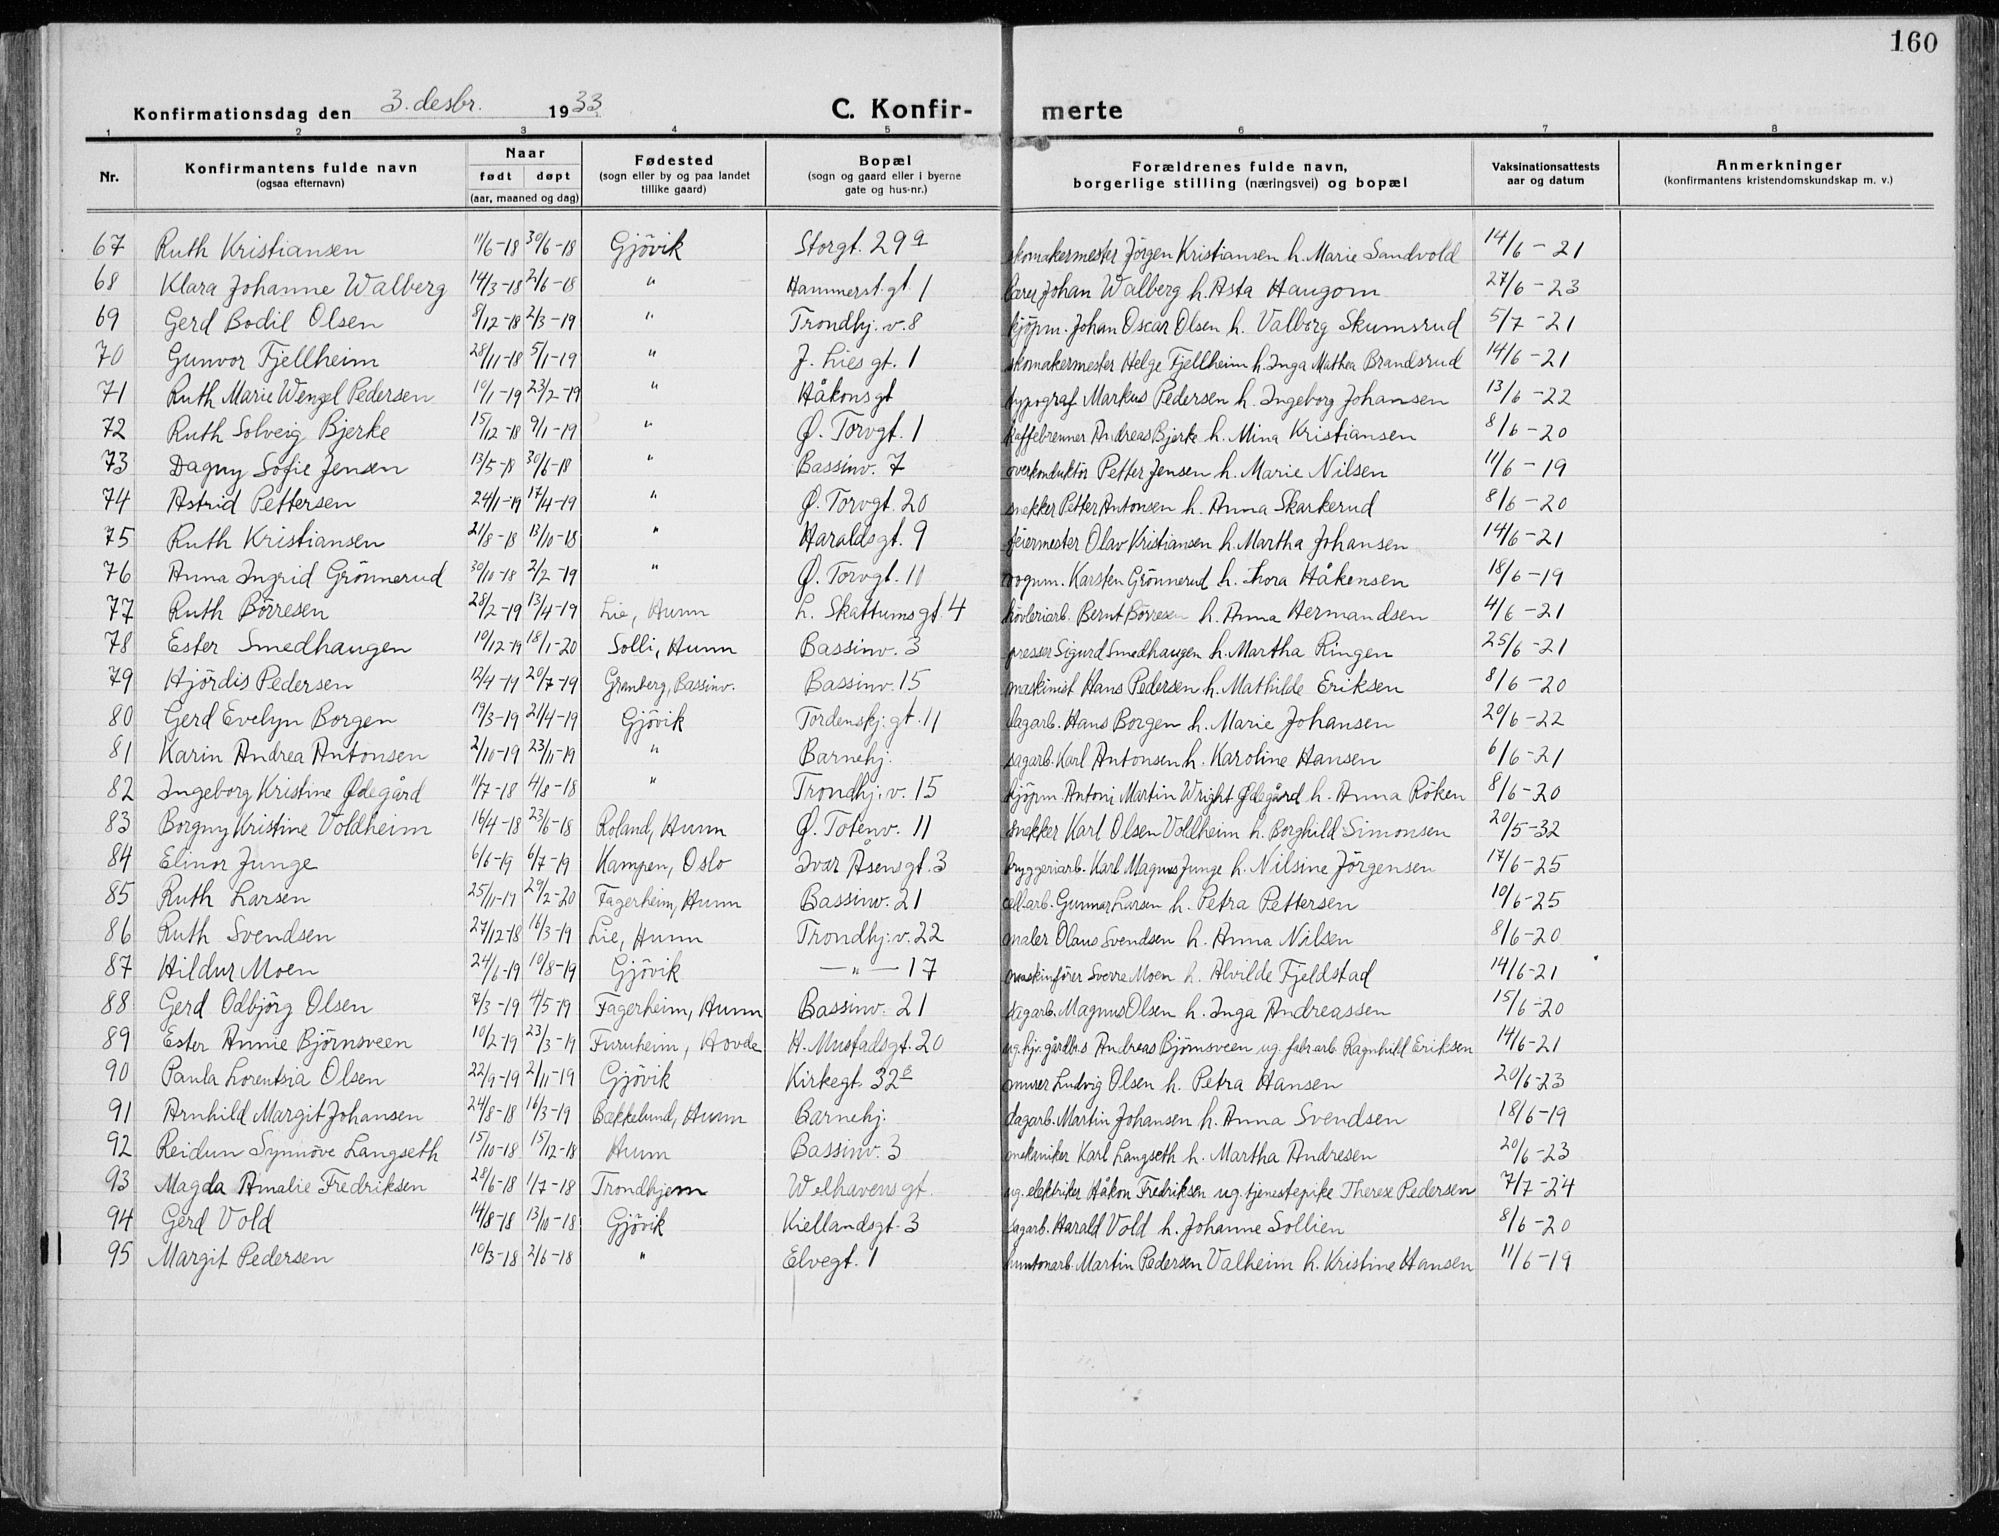 160
Konfirmationsdag den 3. desbr. 1933 C. Konfir- merte
1 2 3 4 5 6 7 8
Nr. Konfirmantens fulde navn (ogsaa efternavn) Naar født døpt (aar, maaned og dag) Fødested (sogn eller by og paa landet tillike gaard) Bopæl (sogn og gaard eller i byerne gate og hus-nr.) Forældrenes fulde navn, borgerlige stilling (næringsvei) og bopæl Vaksinationsattests aar og datum Anmerkninger (konfirmantens kristendomskundskap m. v.)
67 Ruth Kristiansen 11/6-18 30/6-18 Gjövik Storgt. 29a skomakermester Jörgen Kristiansen h. Marie Sandvold 14/6-21
68 Klara Johanne Walberg 14/3-18 2/6-18 " Hammerst.gt. 1 lærer Johan Walberg h. Asta Haugom 27/6-23
69 Gerd Bodil Olsen 8/12-18 2/3-19 " Trondhj.v. 8 kjöpm. Johan Oscar Olsen h. Valborg Skumsrud 5/7-21
70 Gunvor Fjellheim 28/11-18 5/1-19 " J. Lies gt. 1 skomakermester Helge Fjellheim h. Inga Mathea Brandsrud 14/6-21
71 Ruth Marie Wengel Pedersen 10/1-19 23/2-19 " Håkonsgt typograf Markus Pedersen h. Ingeborg Johansen 13/6-22
72 Ruth Solveig Bjerke 15/12-18 9/1-19 " Ø. Torvgt. 1 kaffebrenner Andreas Bjerke h. Mina Kristiansen 8/6-20
73 Dagny Sofie Jensen 13/5-18 30/6-18 " Bassinv. 7 overkonduktör Petter Jensen h. Marie Nilsen 11/6-19
74 Astrid Pettersen 24/1-19 17/4-19 " Ø. Torvgt. 20 snekker Petter Antonsen h. Anna Skarkerud 8/6-20
75 Ruth Kristiansen 21/8-18 13/10-18 " Haraldsgt. 9 feiermester Olav Kristiansen h. Martha Johansen 14/6-21
76 Anna Ingrid Grönnerud 30/10-18 2/2-19 " Ø. Torvgt. 11 vognm. Karsten Grönnerud h. Thora Håkensen 18/6-19
77 Ruth Börresen 28/2-19 13/4-19 Lie, Hunn L. Skattumsgt. 4 hövleriarb. Bernt Börresen h. Anna Hermandsen 4/6-21
78 Ester Smedhaugen 10/12-19 18/1-20 Solli, Hunn Bassinv. 3 presser Sigurd Smedhaugen h. Martha Ringen 25/6-21
79 Hjördis Pedersen 12/4-19 20/7-19 Granberg, Bassinv. Bassinv. 15 maskinist Hans Pedersen h. Mathilde Eriksen 8/6-20
80 Gerd Evelyn Borgen 19/3-19 21/4-19 Gjövik Tordenskj.gt. 11 dagarb. Hans Borgen h. Marie Johansen 20/6-22
81 Karin Andrea Antonsen 2/10-19 23/11-19 " Barnehj. sagarb. Karl Antonsen h. Karoline Hansen 6/6-21
82 Ingeborg Kristine Ødegård 11/7-18 4/8-18 " Trondhj.v. 15 kjöpm. Antoni Martin Wright Ødegård h. Anna Röken 8/6-20
83 Borgny Kristine Voldheim 16/4-18 23/6-18 Roland, Hunn Ø. Totenv. 11 snekker Karl Olsen Voldheim h. Borghild Simonsen 20/5-32
84 Elinor Junge 6/6-19 6/7-19 Kampen, Oslo Ivar Åsensgt. 3 bryggeriarb. Karl Magnus Junge h. Nilsine Jörgensen 17/6-25
85 Ruth Larsen 25/11-19 29/2-20 Fagerheim, Hunn Bassinv. 21 cell.arb. Gunnar Larsen h. Petra Pettersen 10/6-25
86 Ruth Svendsen 27/12-18 16/3-19 Lie, Hunn Trondhj.v. 22 maler Olaus Svendsen h. Anna Nilsen 8/6-20
87 Hildur Moen 24/6-19 10/8-19 Gjövik —"— 17 maskinfører Sverre Moen h. Alvilde Fjeldstad 14/6-21
88 Gerd Odbjörg Olsen 7/3-19 4/5-19 Fagerheim, Hunn Bassinv. 21 sagarb. Magnus Olsen h. Inga Andreassen 15/6-20
89 Ester Annie Björnsveen 10/2-19 23/3-19 Furuheim, Hovde H. Mustadsgt. 20 ug. hjv. gårdbr.s Andreas Björnsveen ug. fabr.arb. Ragnhild Eriksen 14/6-21
90 Paula Lorentsia Olsen 22/9-19 2/11-19 Gjövik Kirkegt. 32b murer Ludvig Olsen h. Petra Hansen 20/6-23
91 Arnhild Margit Johansen 24/8-18 16/3-19 Bækkelund, Hunn Barnehj. dagarb. Martin Johansen h. Anna Svendsen 18/6-19
92 Reidun Synnöve Langseth 15/10-18 15/12-18 Hunn Bassinv. 3 mekaniker Karl Langseth h. Martha Andresen 20/6-23
93 Magda Amalie Fredriksen 28/6-18 1/7-18 Trondhjem Welhavensgt. ug. elektriker Håkon Fredriksen ug. tjenestepike Therese Pedersen 7/7-24
94 Gerd Vold 14/8-18 13/10-18 Gjövik Kiellandsgt. 3 sagarb. Harald Vold h. Johanne Sollien 8/6-20
95 Margit Pedersen 10/3-18 2/6-18 " Elvegt. 1 huntonarb. Martin Pedersen Valheim h. Kristine Hansen 11/6-19